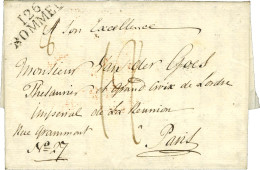 126
BOMMEL
à Son Excellence
Monsieur Van der Goes
Thesaurier et Grand Croix de L'ordre
Imperial de La Reunion
à
Rue Grammont
Paris
No. 27